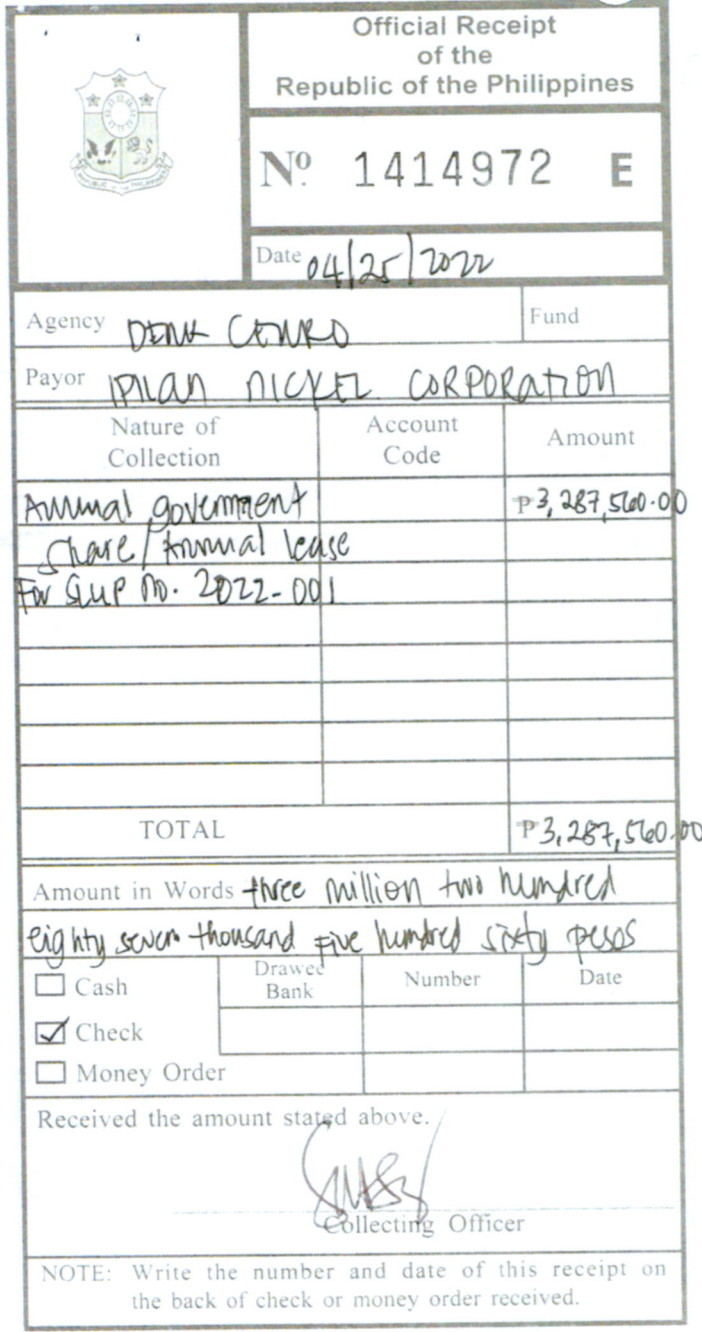 Official Receipt
of the
Republic of the Philippines
REPUBLIC OF THE PHILIPPINES
Nº 1414972 E
Date 04/25/2022
Agency DENR CENRO
Fund
Payor IPILAN NICKEL CORPORATION
Nature of Collection Account Code Amount
Annual government ₱3,287,560.00
share/Annual lease
For SLUP No. 2022-001
TOTAL ₱3,287,560.00
Amount in Words three million two hundred
eighty seven thousand five hundred sixty pesos
Cash Drawee Bank Number Date
Check
Money Order
Received the amount stated above.
Collecting Officer
NOTE: Write the number and date of this receipt on
the back of check or money order received.